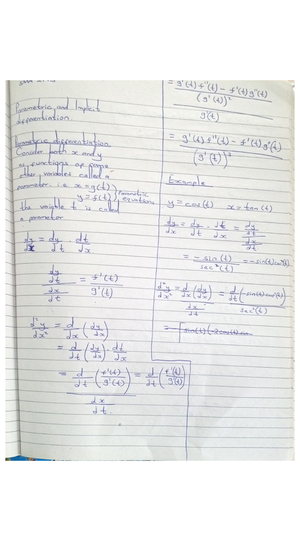 Parametric and Implicit
differentiation.
Parametric differentiation.
Consider both x and y
as functions of some
other variables called a
parameter i.e x = g(t) } Parametric
y = f(t) } equations
the variable t is called
a parameter
dy/dx = dy/dt · dt/dx
(dy/dt)/(dx/dt) = f'(t)/g'(t)
d²y/dx² = d/dx (dy/dx)
= d/dt (dy/dx) · dt/dx
= d/dt (f'(t)/g'(t)) / (dx/dt) = d/dt (f'(t)/g'(t))
= (g'(t) f''(t) - f'(t) g''(t)) / (g'(t))²
g(t)
= (g'(t) f''(t) - f'(t) g''(t)) / (g'(t))³
Example
y = cos(t) x = tan(t)
dy/dx = dy/dt · dt/dx = (dy/dt)/(dx/dt)
= -sin(t)/sec²(t) = -sin(t)cos²(t)
d²y/dx² = d/dx (dy/dx) = d/dt (-sin(t)cos²(t)) / sec²(t)
dx/dt